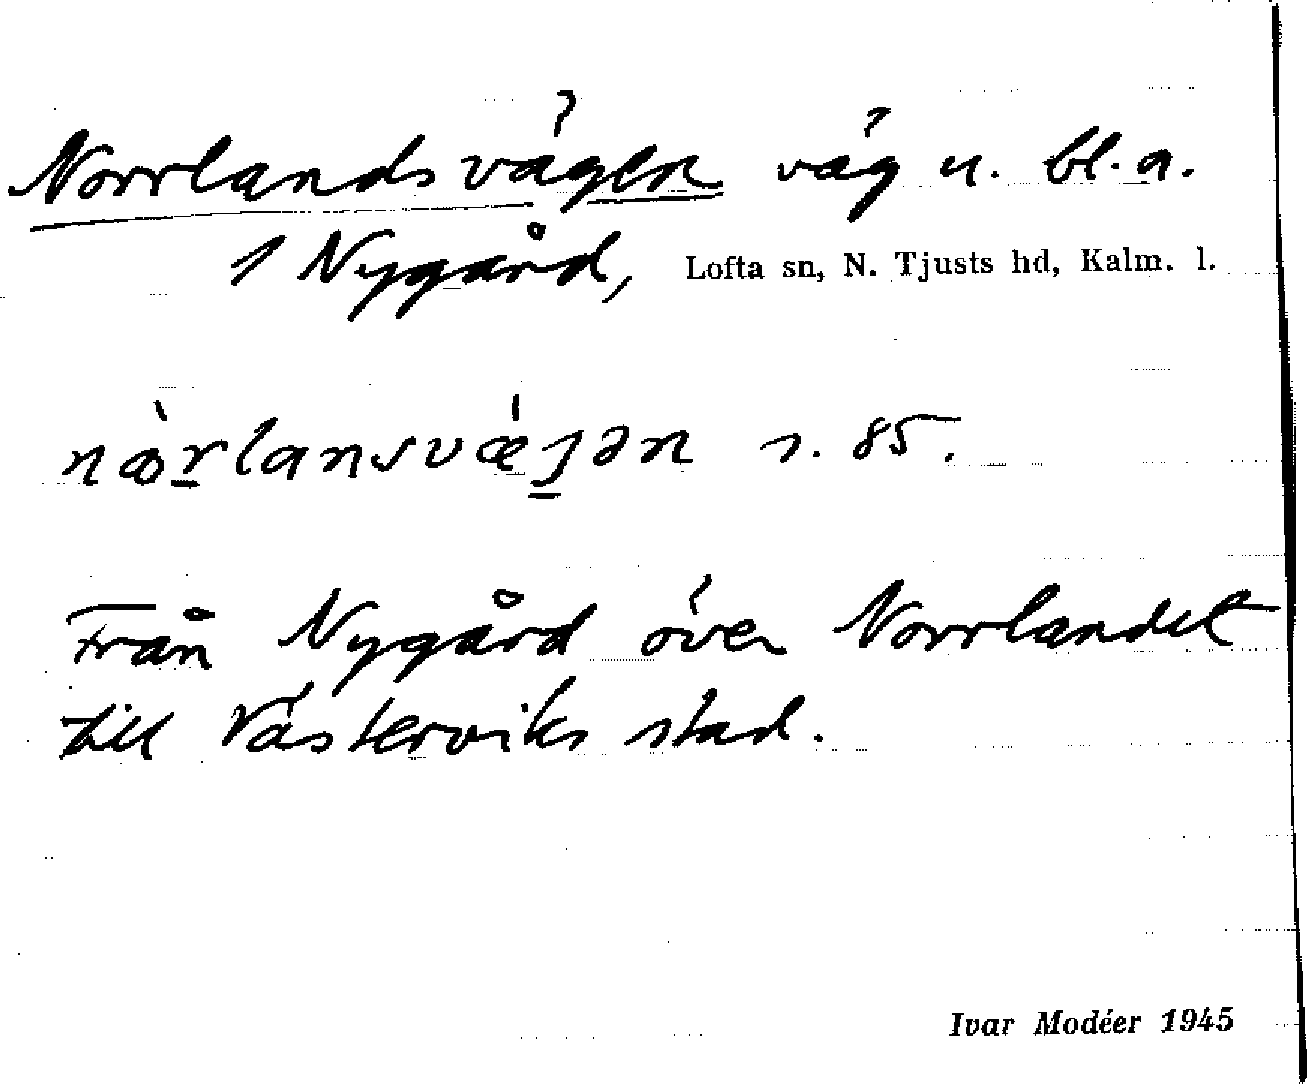 Norrlandsvägen väg u. bl.a.
1 Nygård, Lofta sn, N. Tjusts hd, Kalm. l.
s. 85.
Från Nygård över Norrlandet
till Västerviks stad.
Ivar Modéer 1945